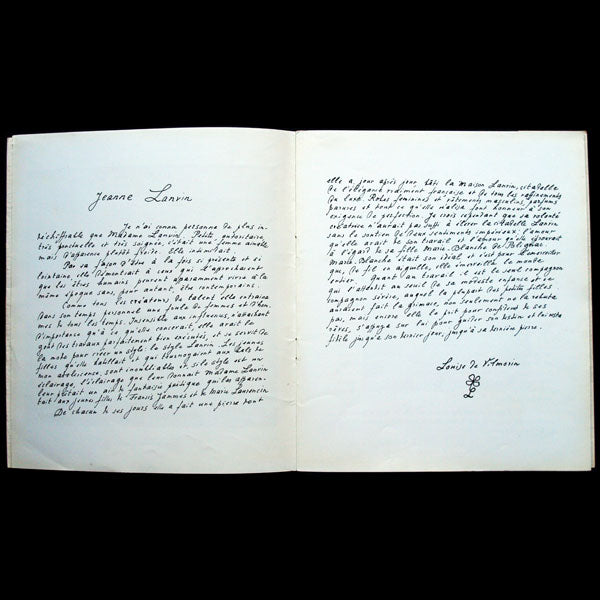 Jeanne Lanvin
Je n'ai connu personne de plus in-
déchiffrable que Madame Lanvin. Petite, autoritaire,
très ponctuelle et très soignée, c'était une femme aimable
mais d'apparence plutôt froide. Elle intimidait.
Par sa façon d'être à la fois si présente et si
lointaine, elle démontrait à ceux qui l'approchaient
que les êtres humains peuvent apparemment vivre à la
même époque sans, pour autant, être contemporains.
Comme tous les créateurs de talent elle entraina
dans son temps personnel une foule de femmes et d'hom-
mes de tous les temps. Insensible aux influences, n'attachant
d'importance qu'à ce qu'elle concevait, elle avait le
goût des travaux parfaitement bien exécutés, et se servit de
sa note pour créer un style: le style Lanvin. Les jeunes
filles qu'elle habillait et qui tournoyaient aux bals de
mon adolescence, sont inoubliables et, si le style est un
éclairage, l'éclairage que leur donnait Madame Lanvin
leur prêtait un air de fantaisie poétique qui les apparen-
tait aux jeunes filles de Francis Jammes et de Marie Laurencin
De chacun de ses jours elle a fait une pierre dont
elle a jour après jour bâti la Maison Lanvin, citadelle
de l'élégance vraiment française et de tous les raffinements
du luxe. Robes féminines et vêtements masculins, parfums,
parures et tout ce qu'elle réalisa font honneur à son
exigence de perfection. Je crois cependant que sa volonté
créatrice n'aurait pas suffi à élever la citadelle Lanvin
sans le soutien de deux sentiments impérieux: l'amour
qu'elle avait de son travail et l'amour qu'elle éprouvait
à l'égard de sa fille Marie-Blanche de Polignac.
Marie-Blanche était son idéal et c'est pour l'émerveiller
que, de fil en aiguille, elle émerveilla le monde
entier. Quant au travail il est le seul compagnon
qui l'attendit au seuil de sa modeste enfance et ce
compagnon sévère, auquel la plupart des petites filles
auraient fait la grimace, non seulement ne la rebuta
pas, mais encore elle le prit pour confident de ses
rêves, s'appuya sur lui pour guider son destin et lui resta
fidèle jusqu'à son dernier jour, jusqu'à sa dernière pierre.
Louise de Vilmorin